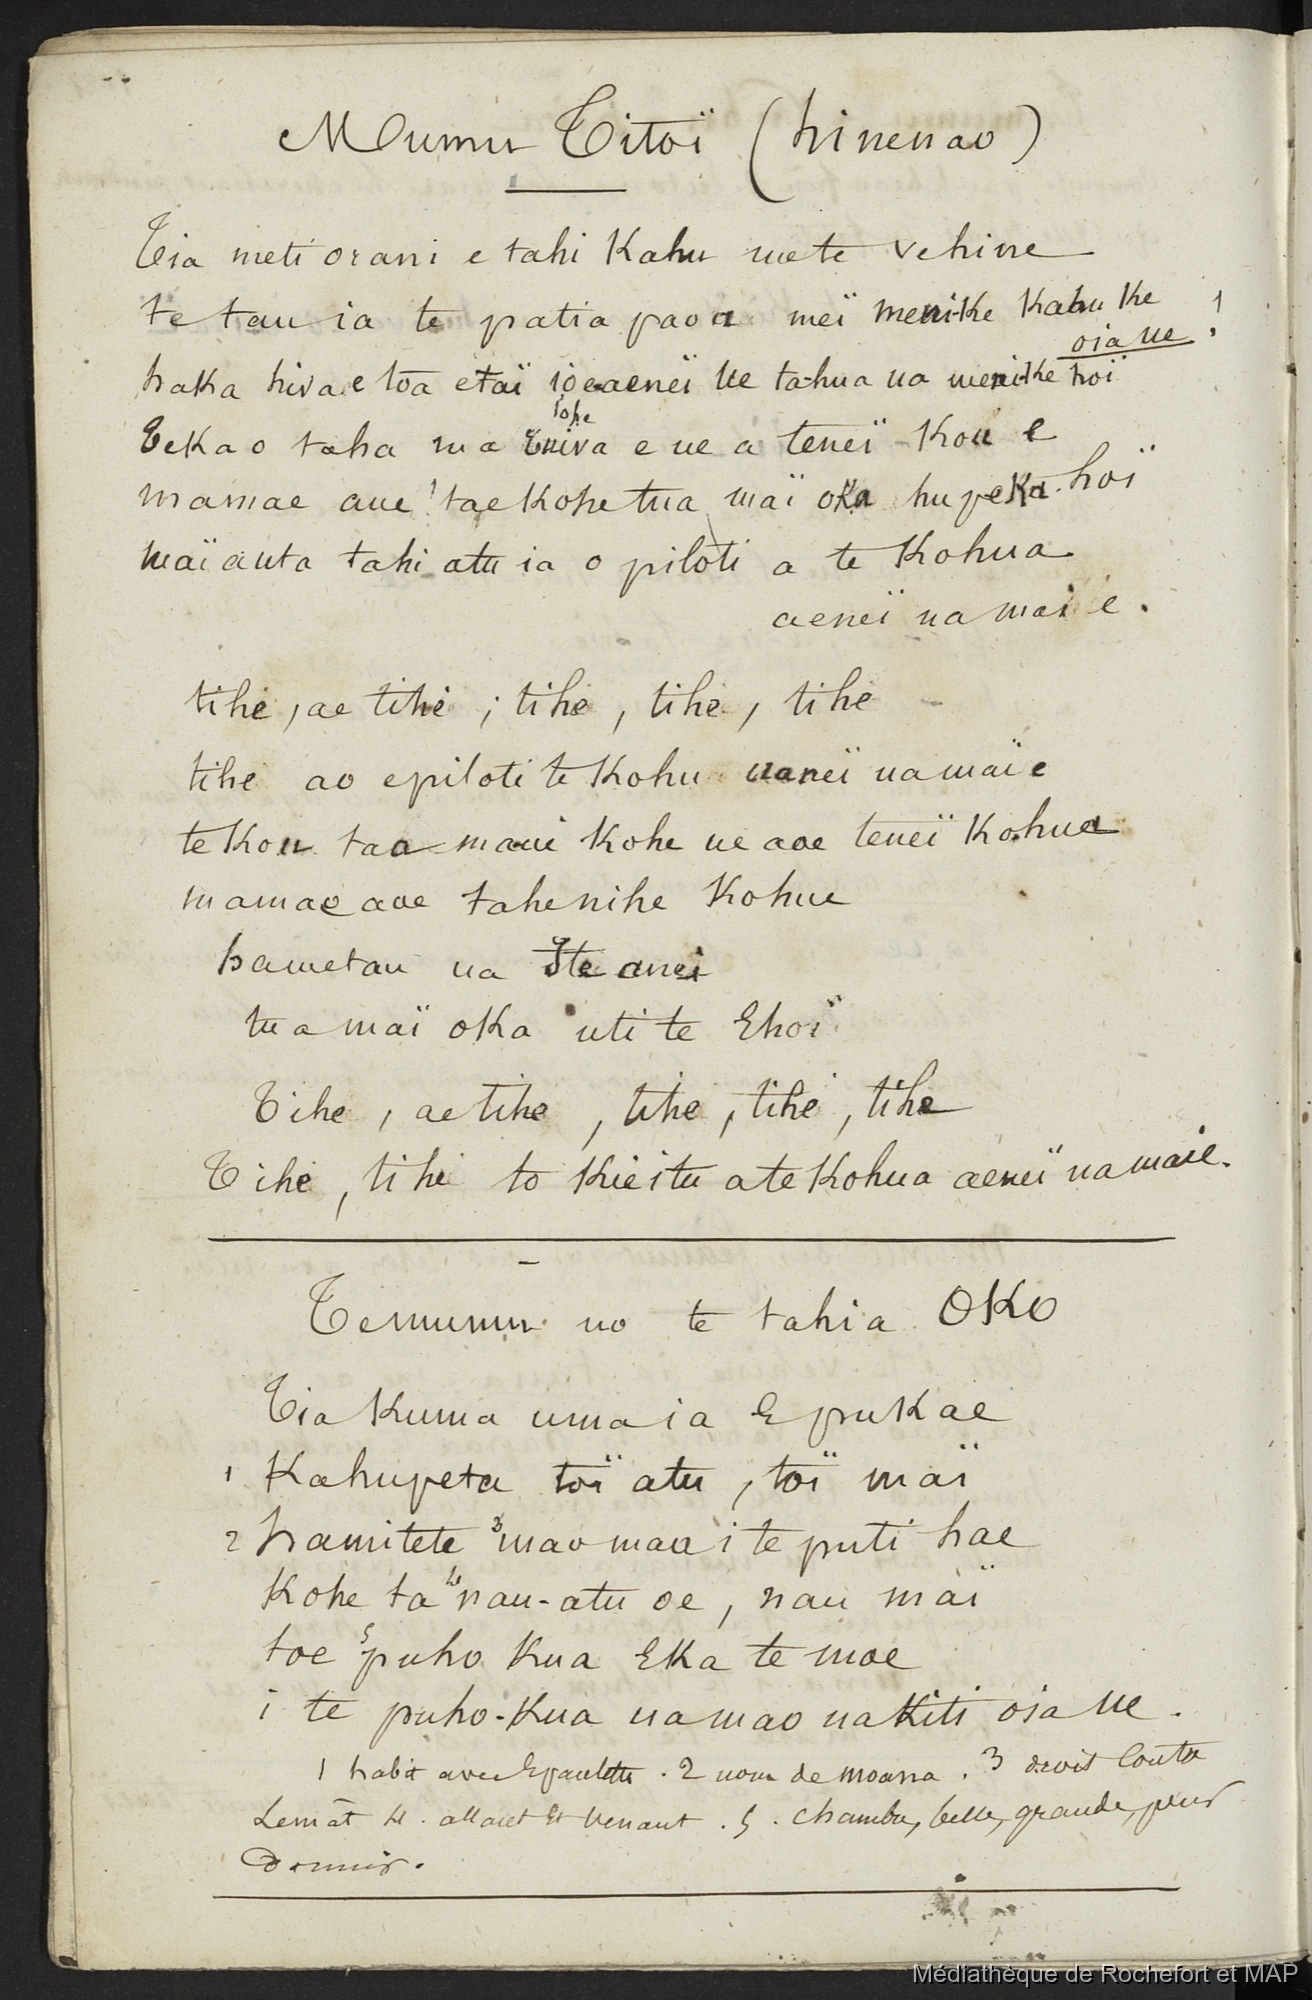 Mumu Titoï (hinenao)
Tia meti orani e tahi Kahu mete vehine
te tau ia te patia paoa meï menike Kahu Ke !
oia ue
haka hiva e toa etaï ioeaeneï ue tahua na menike hoï
tohe
Tekao taha ma Eniva e ue a teneï Kou e
mamae aue ! tae Kohe tua maï oka hupeka hoï
maï auta tahi atu ia o piloti a te Kohua
aeneï na mai e.
tihe, ae tihe ; tihe, tihe, tihe
tihe ao epiloti te Kohu naneï na maï e
te Kou taa maui Kohe ue aoe teneï Kohua
mamae aoe tahenihe Kohue
hametau na Ste anei
tua maï oKa uti te Ehoï
Tihe, ae tihe, tihe, tihe, tihe
Tihe, tihe to Kieitu ate Kohua aeneï na maie.
Temumu no te tahia OKO
Tia Kuma uma ia Epukae
1 Kahupeta toï atu, toï maï
2 hamitete 3 mao maa i te puti hae
Kohe ta 4 nau-atu oe, nau maï
toe 5 puho Kua EKa te moe
i te puho-Kua na mao na Kiti oia ue.
1 habit avec Epaulette . 2 nom de moana . 3 droit Contre
Le mât 4 . allant et venant . 5 . chambre, belle, grande, pour
Dormir.
Médiathèque de Rochefort et MAP